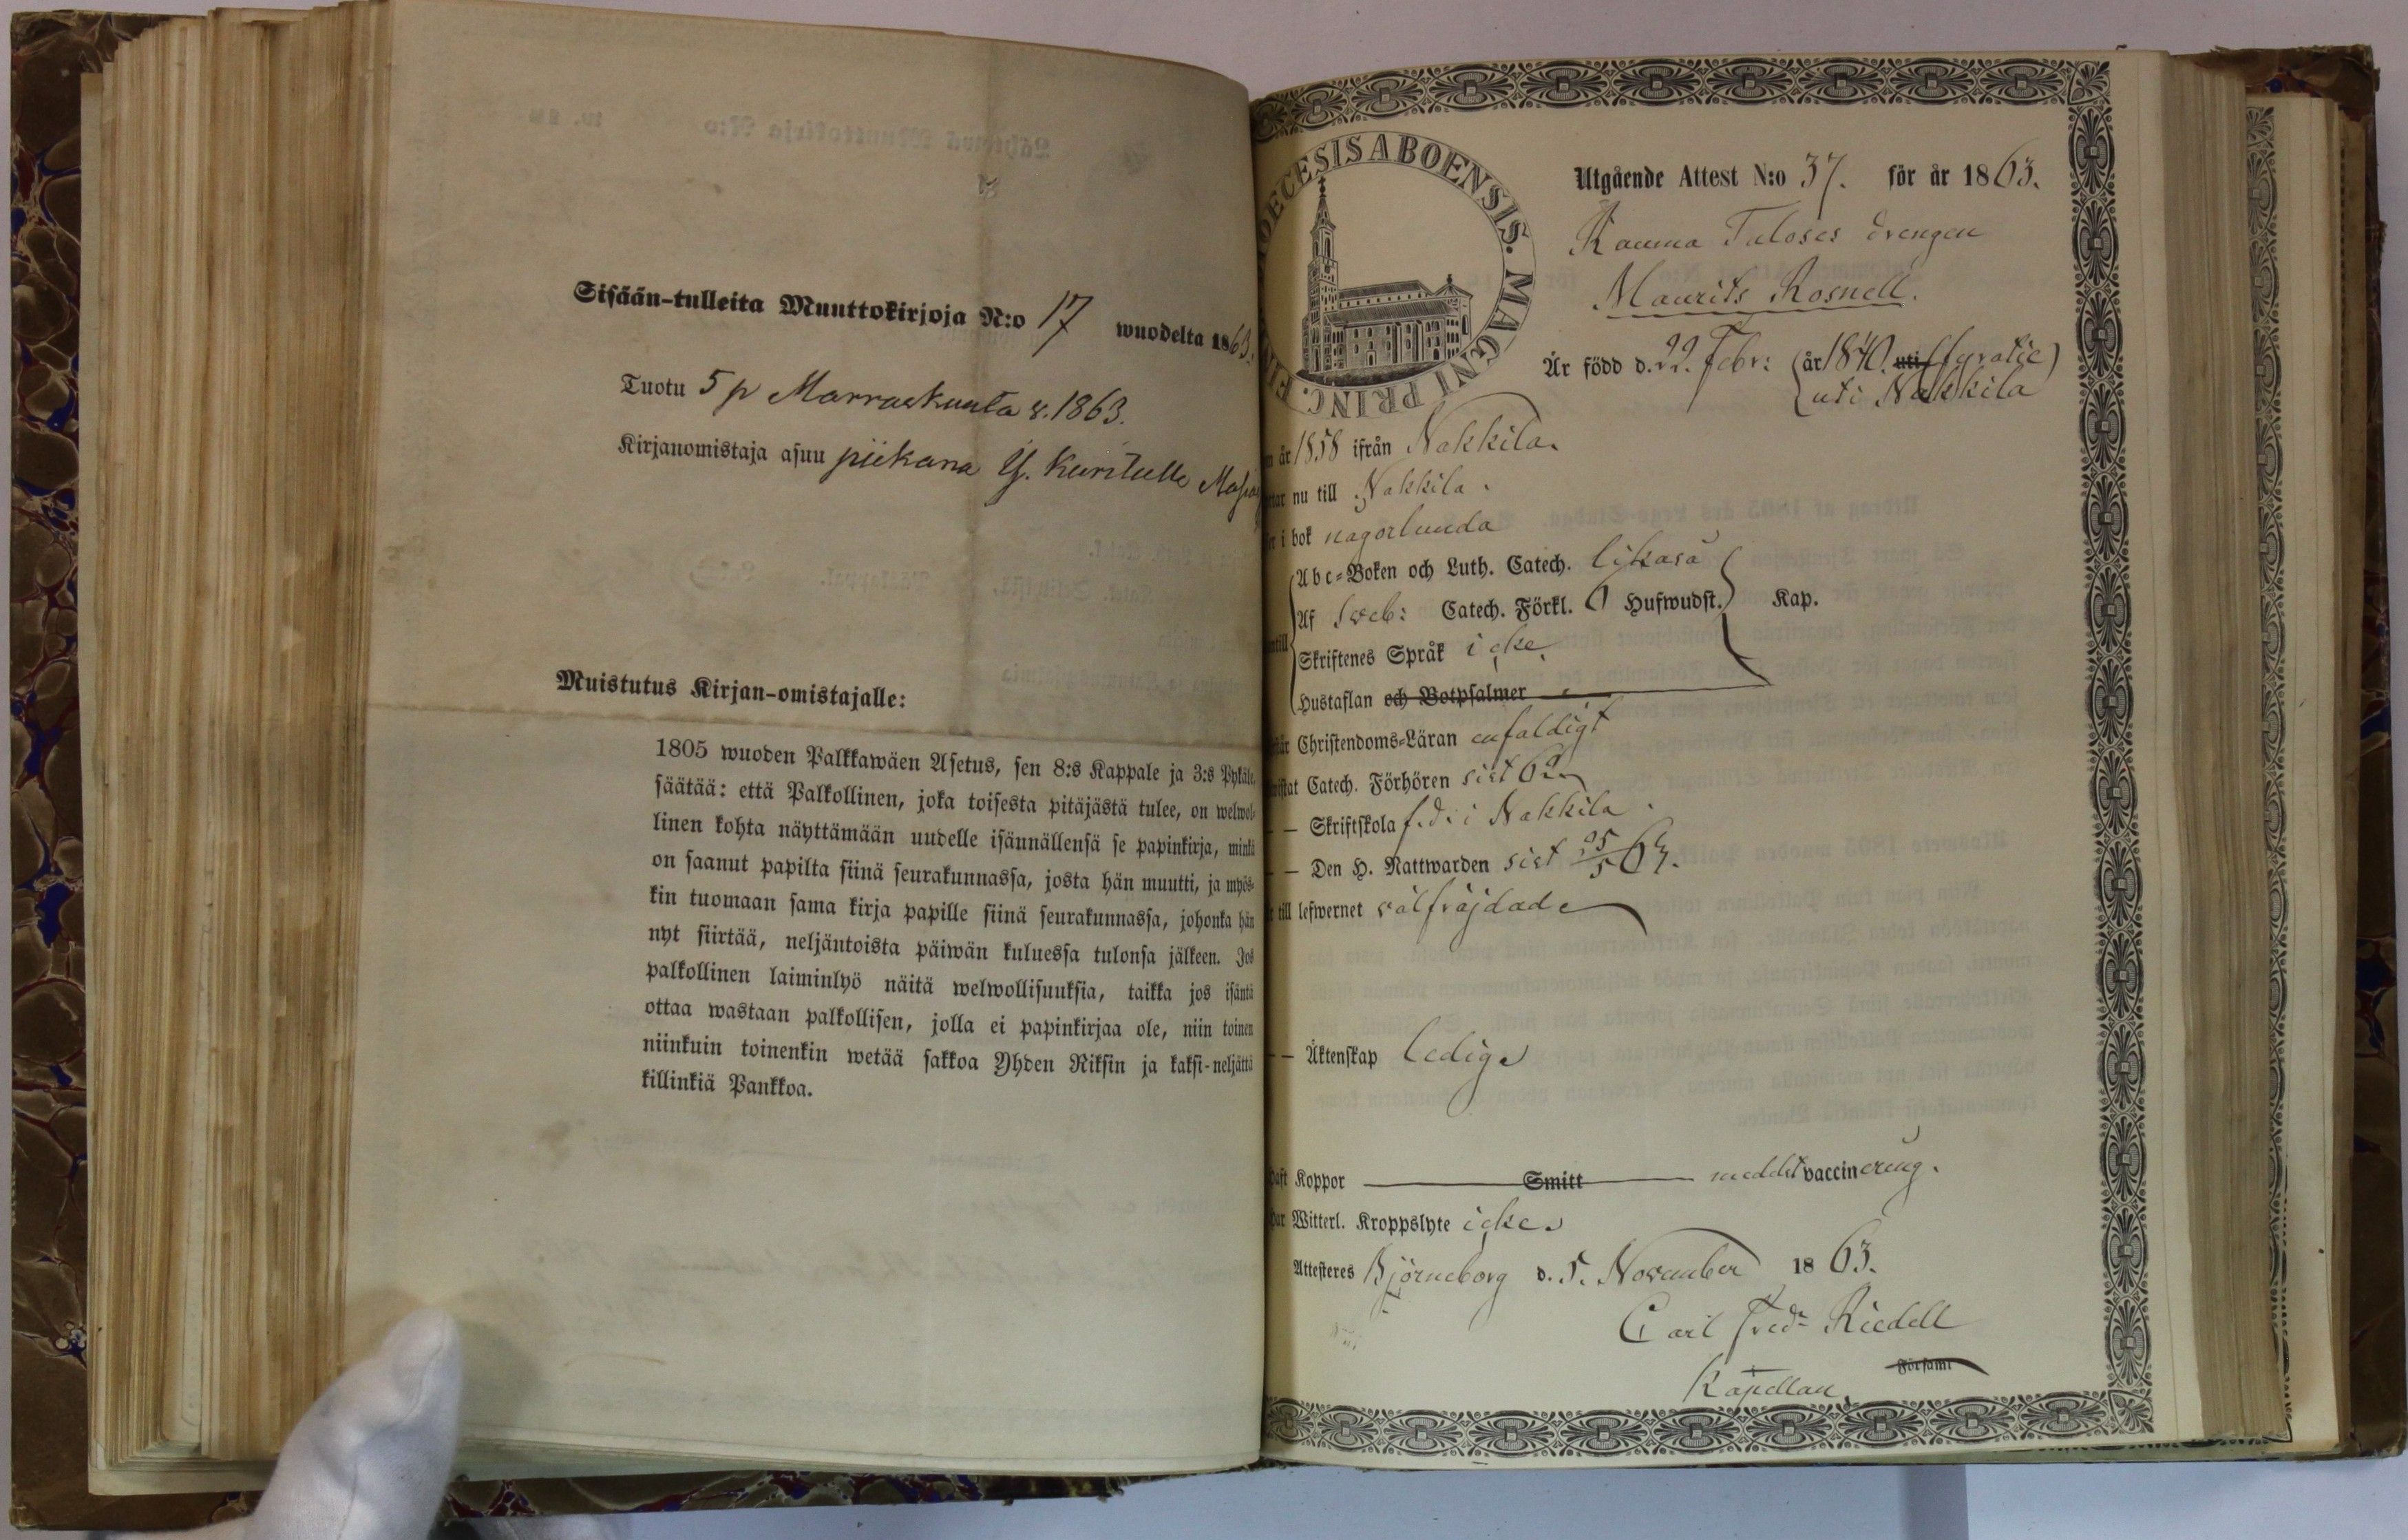 Sisään-tulleita Muuttokirjoja N:o 17 wuodelta 1863.
Tuotu 5 p Marraskuuta v. 1863.
Kirjanomistaja asuu piikana Y.
Muistutus Kirjan-omistajalle:
1805 wuoden Palkkawäen Asetus, sen 8:s Kappale ja 3:s Pykälä,
säätää: että Palkollinen, joka toisesta pitäjästä tulee, on welwol-
linen kohta näyttämään uudelle isännällensä se papinkirja, minkä
on saanut papilta siinä seurakunnassa, josta hän muutti, ja myös-
kin tuomaan sama kirja papille siinä seurakunnassa, johonka hän
nyt siirtää, neljäntoista päiwän kuluessa tulonsa jälkeen. Jos
palkollinen laiminlyö näitä welwollisuuksia, taikka jos isäntä
ottaa wastaan palkollisen, jolla ei papinkirjaa ole, niin toinen
niinkuin toinenkin wetää sakkoa Yhden Riksin ja kaksi-neljättä
killinkiä Pankkoa.
OECESIS ABOENSIS. MAGNI PRINC. FIN
Utgående Attest N:o 37. för år 1863.
drengen
Maurits Rosnell.
Är född d. 22. Febr: (år 1840. uti
uti Nakkila
år 1858 ifrån Nakkila.
nu till Nakkila.
i bok någorlunda
Abc-Boken och Luth. Catech. likaså
Af Sveb: Catech. Förkl. Hufwudst. Kap.
Skriftenes Språk icke
Hustaflan och Botpsalmer
Christendoms-Läran enfaldigt
Catech. Förhören sist 62
— Skriftskola f.d. i Nakkila.
— Den H. Nattwarden sist 25/5 63.
till lefwernet välfräjdad
— Äktenskap ledig
Koppor Smitt medelst vaccinering.
Witterl. Kroppslyte icke
Attesteres Björneborg d. 5. November 1863.
Carl Fredr Riedell
Församl
Kapellan.